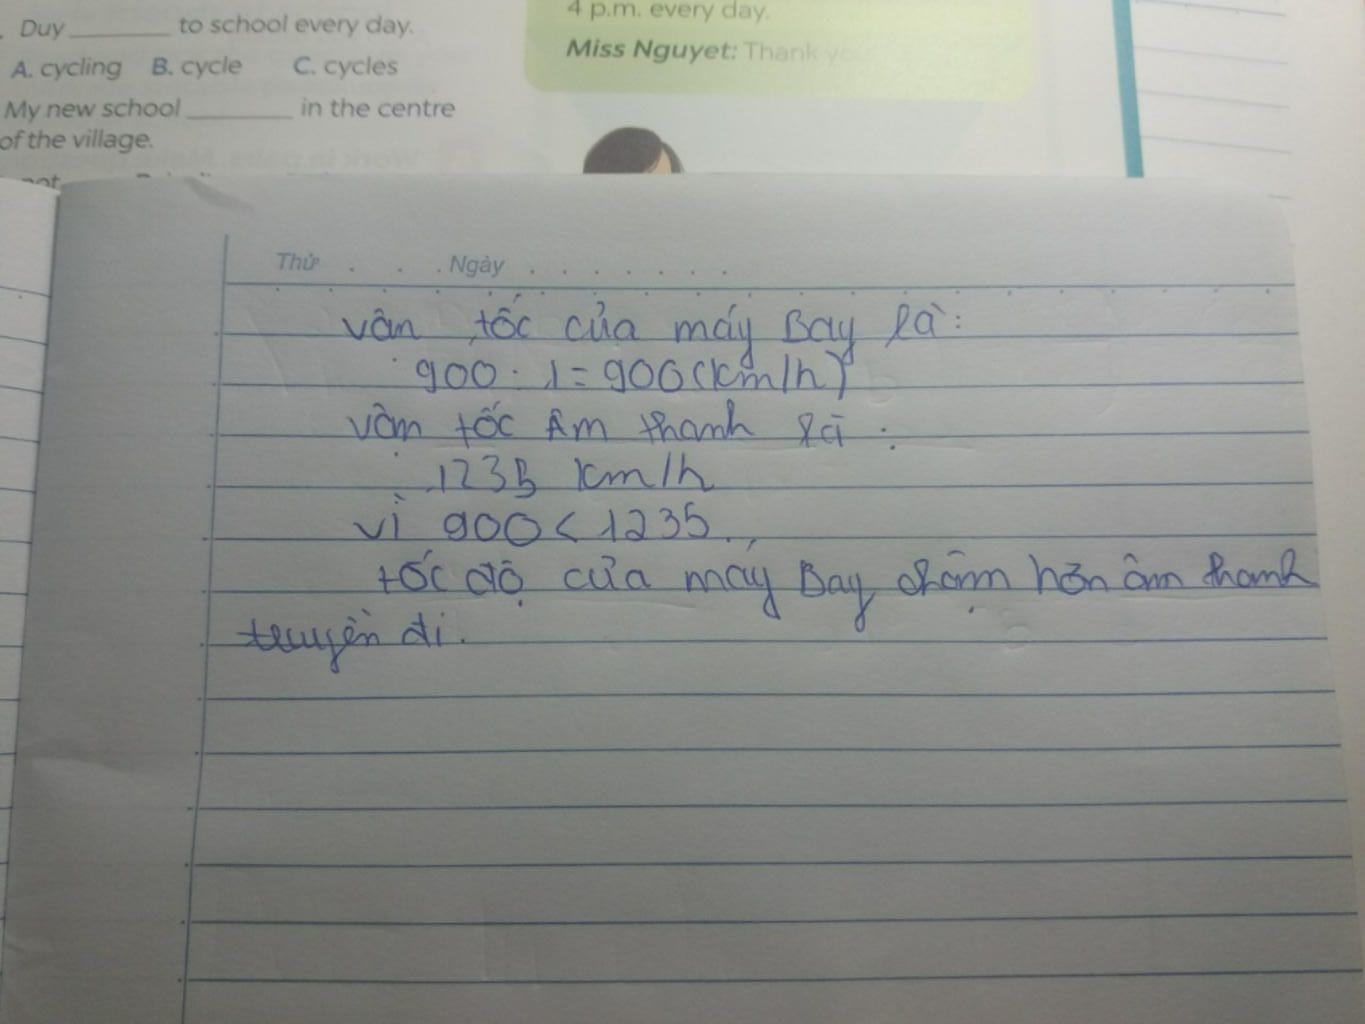 Duy ______ to school every day.
A. cycling B. cycle C. cycles
My new school ______ in the centre
of the village.
4 p.m. every day.
Miss Nguyet: Thank
Thứ . . . Ngày . . . . . . .
vân tốc của máy Bay là:
900 : 1 = 900 (km/h)
vận tốc Âm thanh là :
1235 km/h
vì 900 < 1235.,
tốc độ của máy Bay chậm hơn âm thanh
truyền đi.